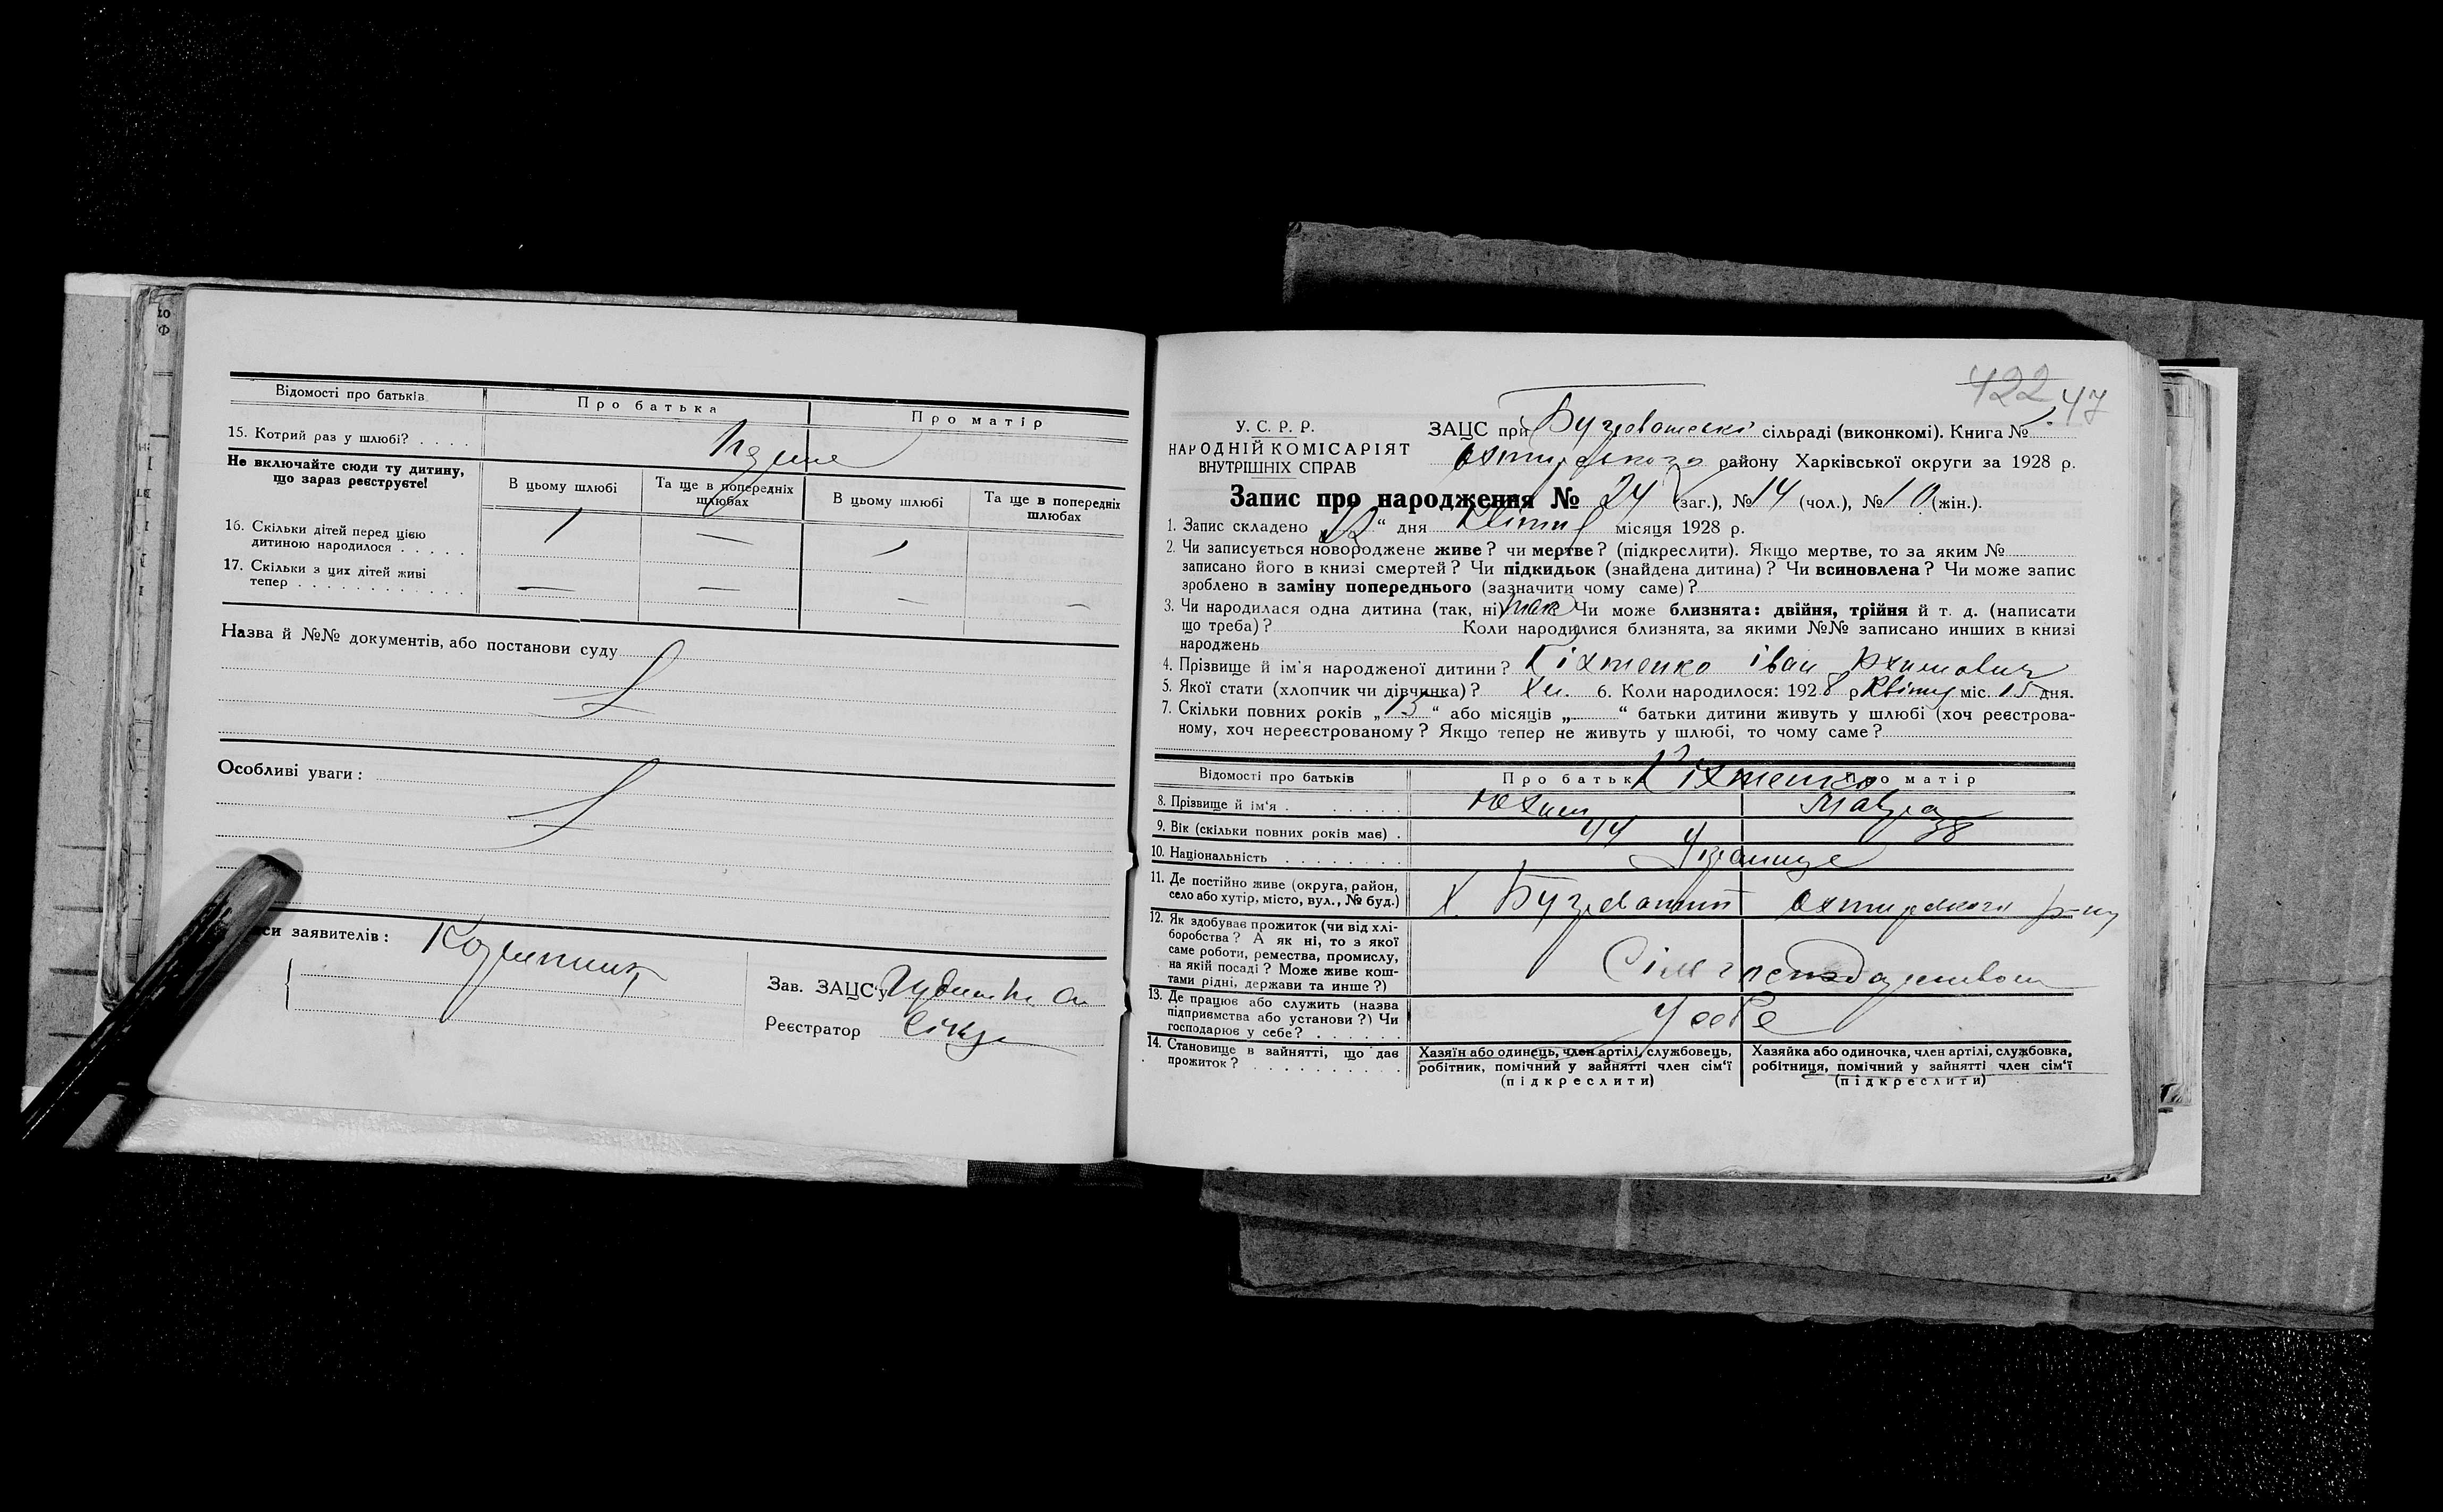 Відомості про батьків
Про батька
Про матір
15. Котрий раз у шлюбі? . . . .
Не включайте сюди ту дитину,
що зараз реєструєте!
В цьому шлюбі
Та ще в попередніх
шлюбах
В цьому шлюбі
Та ще в попередніх
шлюбах
16. Скільки дітей перед цією
дитиною народилося . . . . .
1 — 1
17. Скільки з цих дітей живі
тепер . . . . . . . . . . . .
— — — —
Назва й №№ документів, або постанови суду
Особливі уваги :
си заявителів :
Зав. ЗАЦС'у
Реєстратор
422 47
У. С. Р. Р.
НАРОДНІЙ КОМІСАРІЯТ
ВНУТРІШНІХ СПРАВ
ЗАЦС при сільраді (виконкомі). Книга №
Охтирського району Харківської округи за 1928 р.
Запис про народження № 24 (заг.), № 14 (чол.), № 10 (жін.).
1. Запис складено “ дня Квітня місяця 1928 р.
2. Чи записується новороджене живе? чи мертве? (підкреслити). Якщо мертве, то за яким №
записано його в книзі смертей? Чи підкидьок (знайдена дитина)? Чи всиновлена? Чи може запис
зроблено в заміну попереднього (зазначити чому саме)?
3. Чи народилася одна дитина (так, ні) так Чи може близнята: двійня, трійня й т. д. (написати
що треба)? Коли народилися близнята, за якими №№ записано инших в книзі
народжень
4. Прізвище й ім'я народженої дитини? Кіхтенко іван Юхимович
5. Якої стати (хлопчик чи дівчинка)? Хл. 6. Коли народилося: 1928 р Квітн міс. 15 дня.
7. Скільки повних років „ 13 “ або місяців „ “ батьки дитини живуть у шлюбі (хоч реєстрова-
ному, хоч нереєстрованому? Якщо тепер не живуть у шлюбі, то чому саме?
Відомості про батьків
Про батька
Про матір
Кіхтенко
8. Прізвище й ім'я . . . . . .
Юхим
Мавра
9. Вік (скільки повних років має) .
44 38
10. Національність . . . . . . . .
Українці
11. Де постійно живе (округа, район,
село або хутір, місто, вул., № буд.)
Х. Охтирського р-ну
12. Як здобуває прожиток (чи від хлі-
боробства? А як ні, то з якої
саме роботи, ремества, промислу,
на якій посаді? Може живе кош-
тами рідні, держави та инше?)
Сіл господарством
13. Де працює або служить (назва
підприємства або установи?) Чи
господарює у себе? . . . . . .
У себе
14. Становище в зайнятті, що дає
прожиток? . . . . . . . . . .
Хазяїн або одинець, член артілі, службовець,
робітник, помічний у зайнятті член сім'ї
(підкреслити)
Хазяйка або одиночка, член артілі, службовка,
робітниця, помічний у зайнятті член сім'ї
(підкреслити)